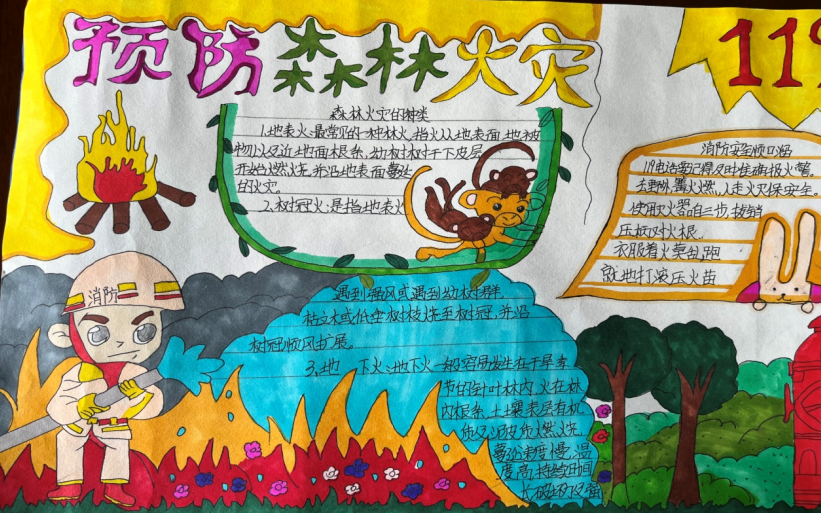 预防森林火灾
119
森林火灾的种类
1.地表火:最常见的一种林火,指火从地表面地被
物以及近地面根系、幼树、树干下皮层
开始燃烧,并沿地表面蔓延
的火灾。
2、树冠火:是指地表火
遇到强风或遇到幼树群、
枯立木或低垂树枝烧至树冠,并沿
树冠顺风扩展。
3、地下火:地下火一般容易发生在干旱季
节的针叶林内,火在林
内根系、土壤表层有机
质及泥炭质燃烧,
蔓延速度慢,温
度高,持续时间
长,破坏力强
消防安全顺口溜
119电话要记得,及时准确报火警,
火燃,人走火灭保安全。
使用灭火器四三步,拔销
压把对火根。
衣服着火莫乱跑
就地打滚压火苗
消防